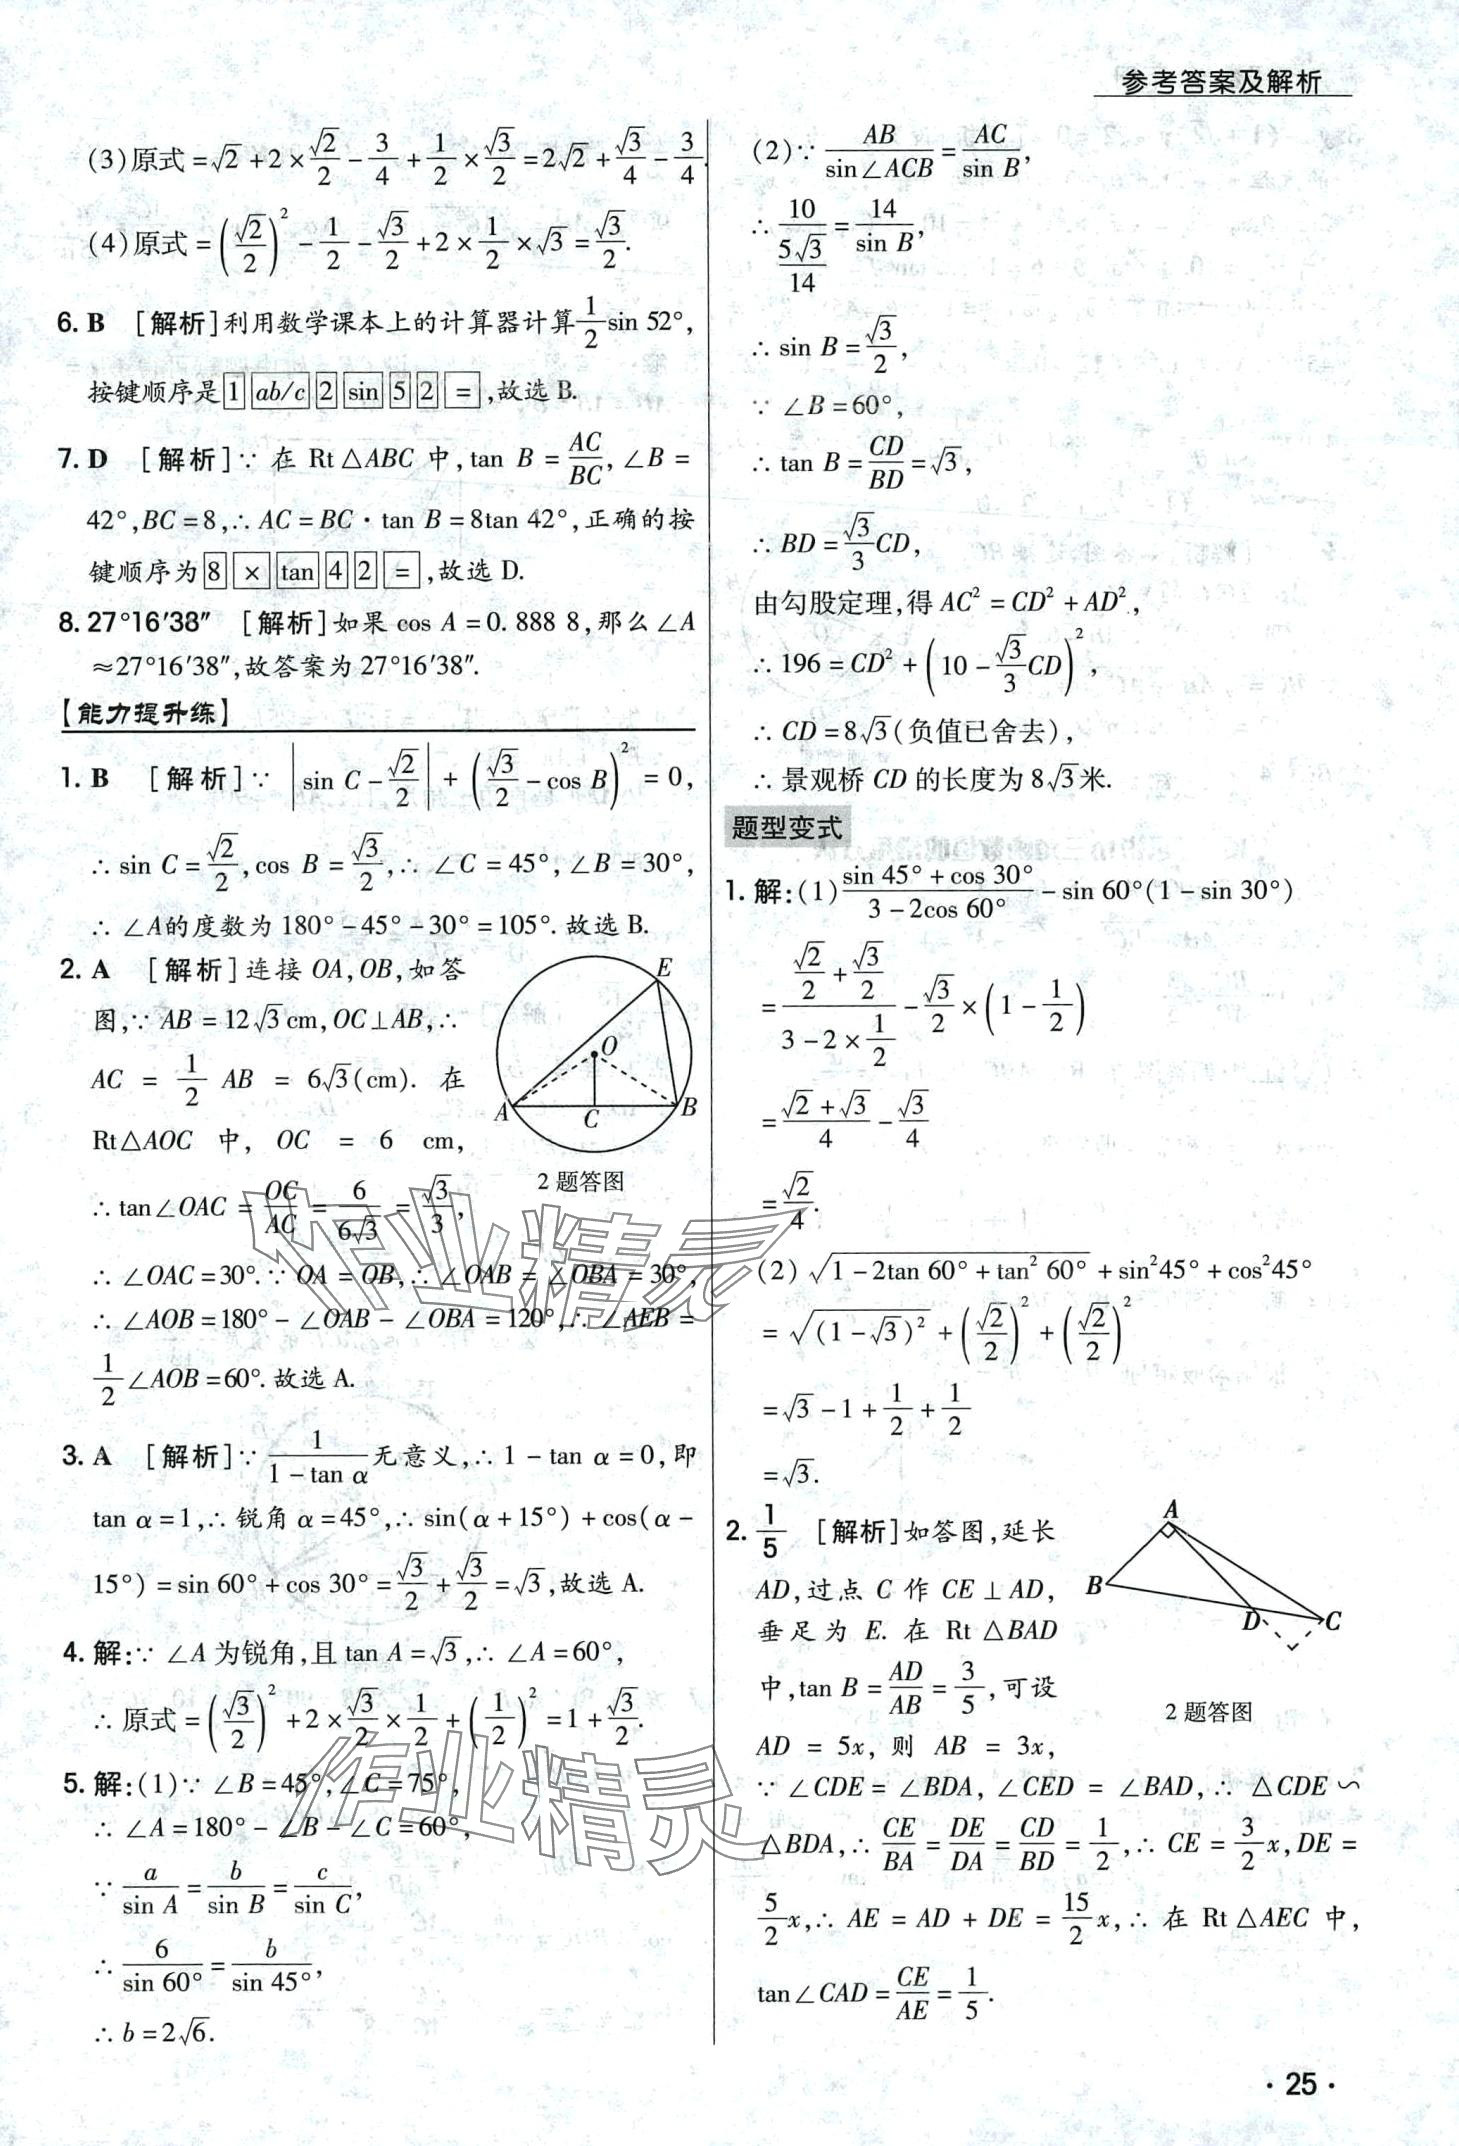 参考答案及解析
(3)原式=√2+2×√2/2-3/4+1/2×√3/2=2√2+√3/4-3/4.
(4)原式=(√2/2)²-1/2-√3/2+2×1/2×√3=√3/2.
6. B [解析]利用数学课本上的计算器计算1/2sin 52°,
按键顺序是 1 ab/c 2 sin 5 2 = ,故选 B.
7. D [解析]∵ 在 Rt△ABC 中,tan B=AC/BC,∠B=
42°,BC=8,∴ AC=BC·tan B=8tan 42°,正确的按
键顺序为 8 × tan 4 2 = ,故选 D.
8. 27°16′38″ [解析]如果 cos A=0.888 8,那么∠A
≈27°16′38″,故答案为 27°16′38″.
【能力提升练】
1. B [解析]∵ |sin C-√2/2|+(√3/2-cos B)²=0,
∴ sin C=√2/2,cos B=√3/2,∴ ∠C=45°,∠B=30°,
∴ ∠A的度数为 180°-45°-30°=105°.故选 B.
2. A [解析]连接 OA,OB,如答
图,∵ AB=12√3cm,OC⊥AB,∴
AC=1/2 AB=6√3(cm). 在
Rt△AOC 中, OC=6 cm,
∴ tan∠OAC=OC/AC=6/6√3=√3/3,
E
O
A
C
B
2 题答图
∴ ∠OAC=30°.∵ OA=OB,∴ ∠OAB=∠OBA=30°,
∴ ∠AOB=180°-∠OAB-∠OBA=120°,∴ ∠AEB=
1/2∠AOB=60°.故选 A.
3. A [解析]∵ 1/(1-tan α)无意义,∴ 1-tan α=0,即
tan α=1,∴ 锐角 α=45°,∴ sin(α+15°)+cos(α-
15°)=sin 60°+cos 30°=√3/2+√3/2=√3,故选 A.
4. 解:∵ ∠A 为锐角,且 tan A=√3,∴ ∠A=60°,
∴ 原式=(√3/2)²+2×√3/2×1/2+(1/2)²=1+√3/2.
5. 解:(1)∵ ∠B=45°,∠C=75°,
∴ ∠A=180°-∠B-∠C=60°,
∵ a/sin A=b/sin B=c/sin C,
∴ 6/sin 60°=b/sin 45°,
∴ b=2√6.
(2)∵ AB/sin∠ACB=AC/sin B,
∴ 10/(5√3/14)=14/sin B,
∴ sin B=√3/2,
∵ ∠B=60°,
∴ tan B=CD/BD=√3,
∴ BD=√3/3CD,
由勾股定理,得 AC²=CD²+AD²,
∴ 196=CD²+(10-√3/3CD)²,
∴ CD=8√3(负值已舍去),
∴ 景观桥 CD 的长度为 8√3米.
题型变式
1. 解:(1)(sin 45°+cos 30°)/(3-2cos 60°)-sin 60°(1-sin 30°)
=(√2/2+√3/2)/(3-2×1/2)-√3/2×(1-1/2)
=(√2+√3)/4-√3/4
=√2/4.
(2)√(1-2tan 60°+tan² 60°)+sin²45°+cos²45°
=√((1-√3)²)+(√2/2)²+(√2/2)²
=√3-1+1/2+1/2
=√3.
2. 1/5 [解析]如答图,延长
AD,过点 C 作 CE⊥AD,
垂足为 E. 在 Rt△BAD
中,tan B=AD/AB=3/5,可设
AD=5x, 则 AB=3x,
A
B
D
C
2 题答图
∵ ∠CDE=∠BDA,∠CED=∠BAD,∴ △CDE∽
△BDA,∴ CE/BA=DE/DA=CD/BD=1/2,∴ CE=3/2x,DE=
5/2x,∴ AE=AD+DE=15/2x,∴ 在 Rt△AEC 中,
tan∠CAD=CE/AE=1/5.
·25·
作业精灵
作业精灵